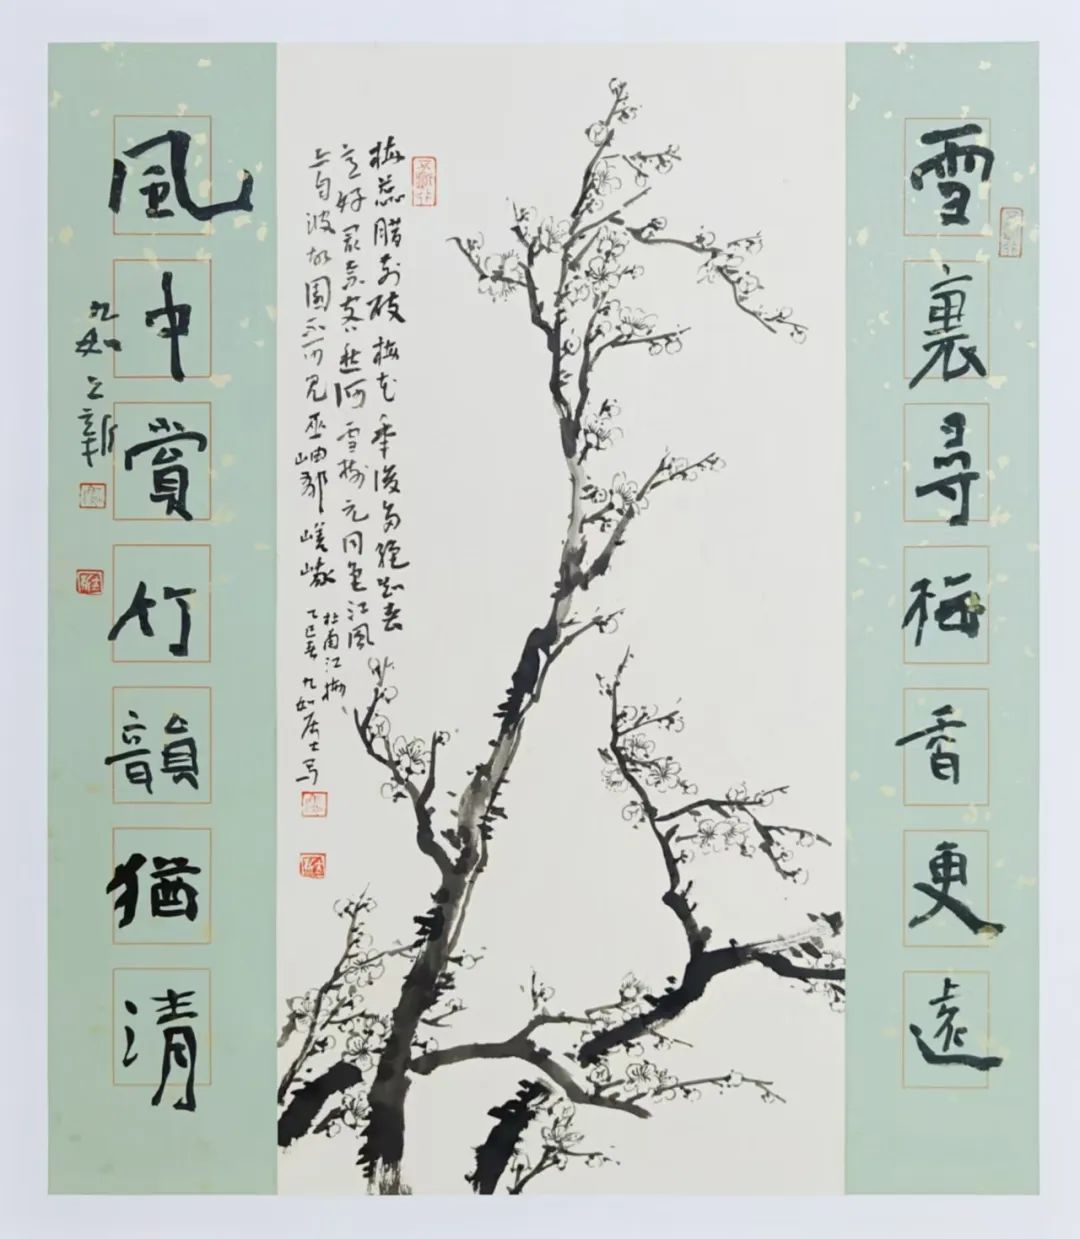 雪裏尋梅香更遠
梅蕊腊前破梅花年後多絕知春
意好最奈客愁何雪樹元同色江風
亦自波故園不可見巫岫郁嵯峨
杜甫江梅
乙巳春九如居士写
風中賞竹韻猶清
九如立新